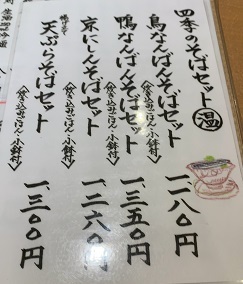 四季のそばセット 温
鳥なんばそばセット
〈炊き込みごはん・小鉢付〉
一、一八〇円
鴨なんばそばセット
〈炊き込みごはん・小鉢付〉
一、三五〇円
京にしんそばセット
〈炊き込みごはん・小鉢付〉
一、二六〇円
天ぷらそばセット
〈炊き込みごはん・小鉢付〉
一、三〇〇円